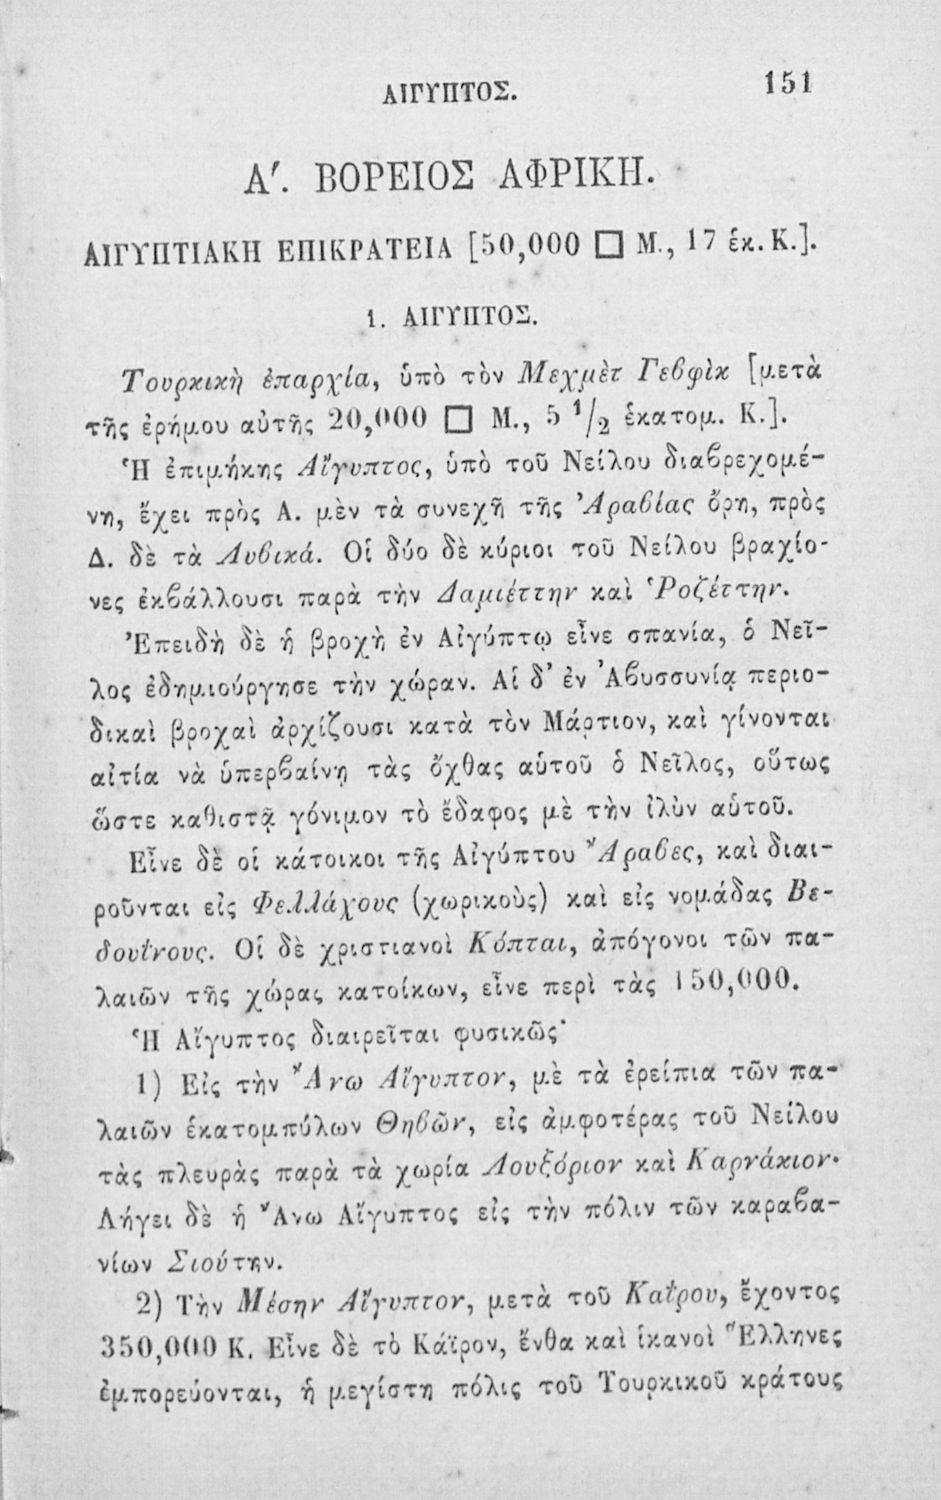 ΑΙΓΥΠΤΟΣ. 151
Αʹ. ΒΟΡΕΙΟΣ ΑΦΡΙΚΗ.
ΑΙΓΥΠΤΙΑΚΗ ΕΠΙΚΡΑΤΕΙΑ [50,000 □ Μ., 17 ἑκ. Κ.].
1. ΑΙΓΥΠΤΟΣ.
Τουρκικὴ ἐπαρχία, ὑπὸ τὸν Μεχμὲτ Γεβφὶκ [μετὰ
τῆς ἐρήμου αὐτῆς 20,000 □ Μ., 5 1/2 ἑκατομ. Κ.].
Ἡ ἐπιμήκης Αἴγυπτος, ὑπὸ τοῦ Νείλου διαβρεχομέ-
νη, ἔχει πρὸς Α. μὲν τὰ συνεχῆ τῆς Ἀραβίας ὄρη, πρὸς
Δ. δὲ τὰ Λυβικά. Οἱ δύο δὲ κύριοι τοῦ Νείλου βραχίο-
νες ἐκβάλλουσι παρὰ τὴν Δαμιέττην καὶ Ῥοζέττην.
Ἐπειδὴ δὲ ἡ βροχὴ ἐν Αἰγύπτῳ εἶνε σπανία, ὁ Νεῖ-
λος ἐδημιούργησε τὴν χώραν. Αἱ δ' ἐν Ἀβυσσυνίᾳ περιο-
δικαὶ βροχαὶ ἀρχίζουσι κατὰ τὸν Μάρτιον, καὶ γίνονται
αἰτία νὰ ὑπερβαίνῃ τὰς ὄχθας αὑτοῦ ὁ Νεῖλος, οὕτως
ὥστε καθιστᾷ γόνιμον τὸ ἔδαφος μὲ τὴν ἰλὺν αὑτοῦ.
Εἶνε δὲ οἱ κάτοικοι τῆς Αἰγύπτου Ἄραβες, καὶ διαι-
ροῦνται εἰς Φελλάχους (χωρικοὺς) καὶ εἰς νομάδας Βε-
δουΐνους. Οἱ δὲ χριστιανοὶ Κόπται, ἀπόγονοι τῶν πα-
λαιῶν τῆς χώρας κατοίκων, εἶνε περὶ τὰς 150,000.
Ἡ Αἴγυπτος διαιρεῖται φυσικῶς·
1) Εἰς τὴν Ἄνω Αἴγυπτον, μὲ τὰ ἐρείπια τῶν πα-
λαιῶν ἑκατομπύλων Θηβῶν, εἰς ἀμφοτέρας τοῦ Νείλου
τὰς πλευρὰς παρὰ τὰ χωρία Λουξόριον καὶ Καρνάκιον·
Λήγει δὲ ἡ Ἄνω Αἴγυπτος εἰς τὴν πόλιν τῶν καραβα-
νίων Σιούτην.
2) Τὴν Μέσην Αἴγυπτον, μετὰ τοῦ Καΐρου, ἔχοντος
350,000 Κ. Εἶνε δὲ τὸ Κάϊρον, ἔνθα καὶ ἱκανοὶ Ἕλληνες
ἐμπορεύονται, ἡ μεγίστη πόλις τοῦ Τουρκικοῦ κράτους